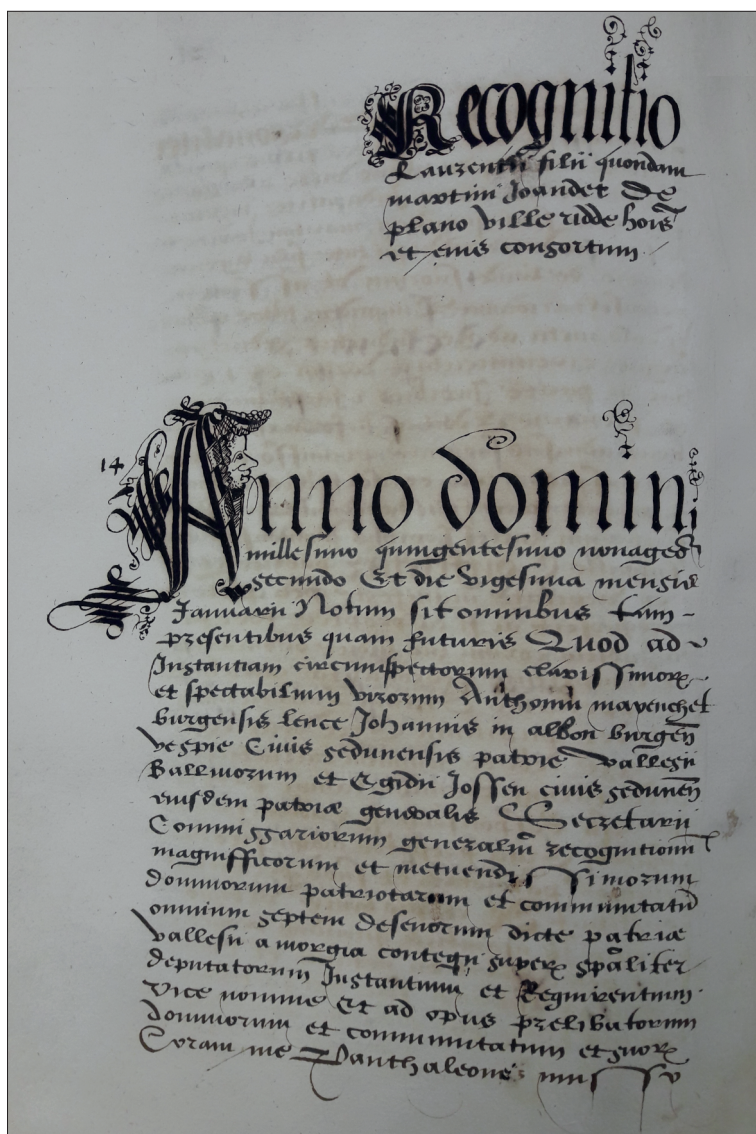 Recognitio
Laurentii filii quondam
martini Joandet De
plano ville ridde hois
et eius consortum
14
Anno domini
millesimo quingentesimo nonages
secundo Et die vigesima mensis
Januarii Notum sit omnibus tam
presentibus quam futuris Quod ad
Instantiam circumspectorum clarissimor
et spectabilium virorum Anthonii mayenchet
burgensis leuce Johannis in albon burgen
vespie Civis sedunensis patrie vallesii
Ballivorum et Egidii Jossen civis sedunen
eiusdem patriæ generalis Secretarii
Commissariorum generaliu recognitionu
magnifficorum et metuendissimorum
dominorum patriotarum et communitatu
omnium septem desenorum dicte patriæ
vallesii a morgia contegii super spaliter
deputatorum Instantium et Requirentium
vice nomine Et ad opus prelibatorum
dominorum et communitatum et suor
Coram me Panthaleone